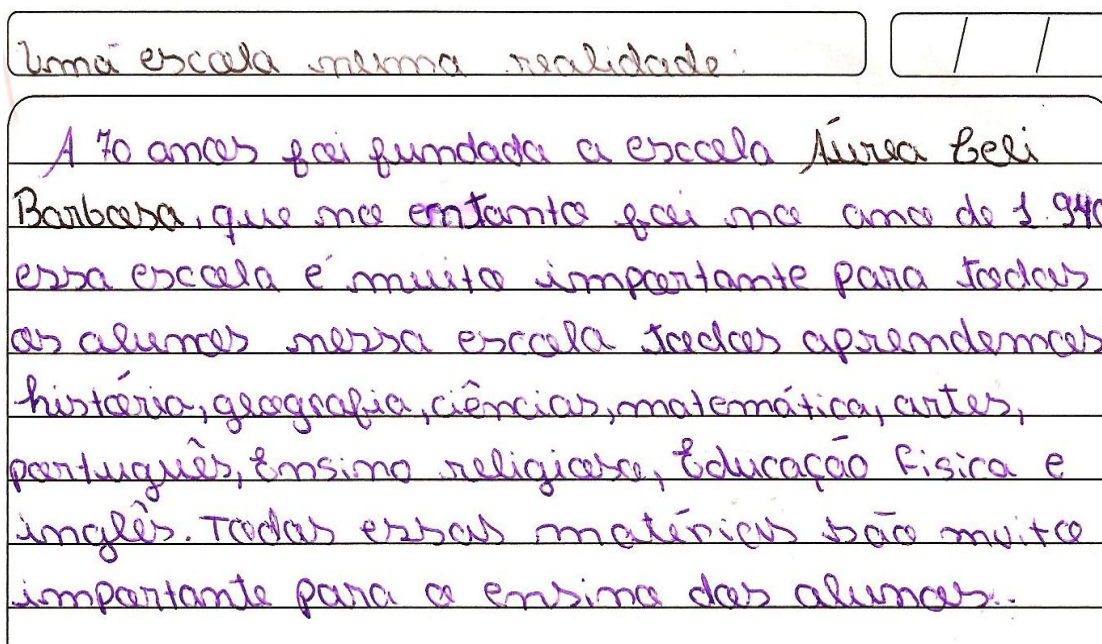 Uma escola numa realidade:
A 70 anos foi fundada a escola Áurea Celi
Barbosa, que no entanto foi no ano de 1.940
essa escola é muito importante para todos
os alunos nessa escola todos aprendemos
história, geografia, ciências, matemática, artes,
português, Ensino religioso, Educação Fisica e
inglês. Todas essas matérias são muito
importante para o ensino dos alunos..